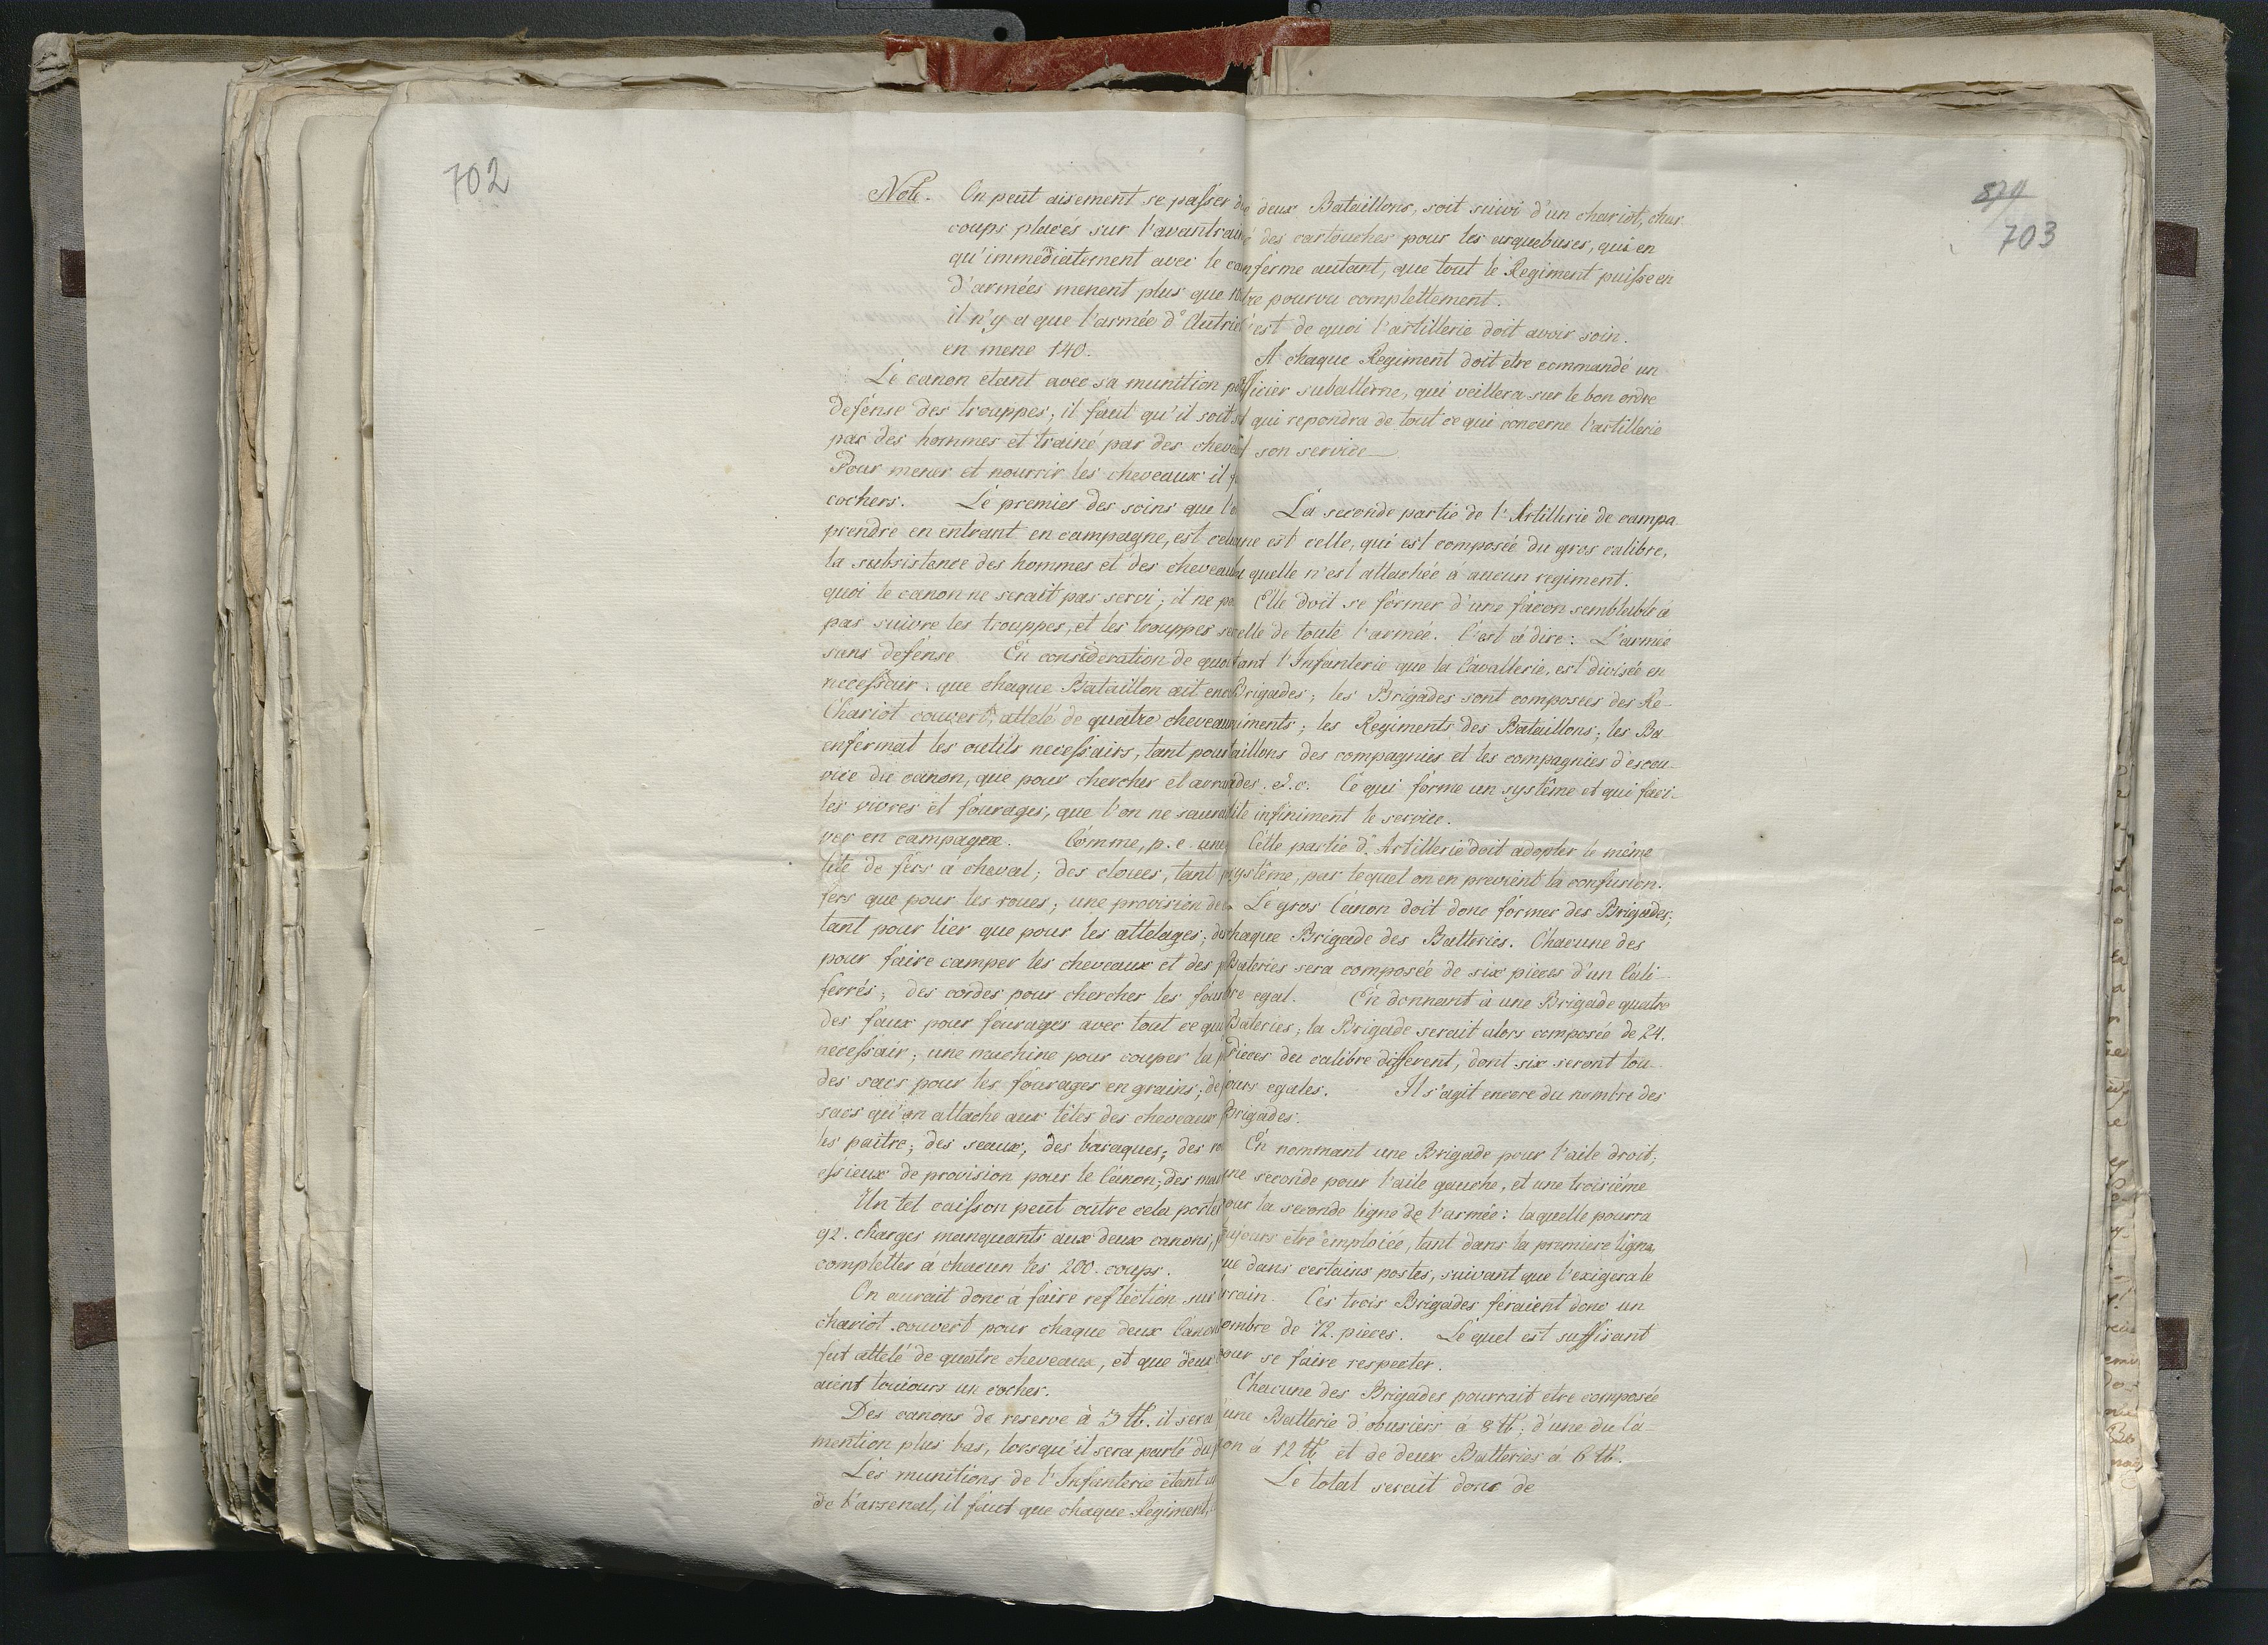 702
Note. On peut aisement se passer
coups placés sur l'avantrain
qu'immediatement avec le
d'armées menent plus que
il n'y a que l'armée d'Autri
en mene 140.
Le canon etant avec sa munition
defense des trouppes; il faut qu'il soit
par des hommes et trainé par des cheve
Pour mener et nourrir les cheveaux il
cochers. Le premier des soins que
prendre en entrant en campagne, est
la subsistence des hommes et des cheveau
quoi le canon ne serait pas servi; il ne
pas suivre les trouppes, et les trouppes
sans defense. En consideration de quoi
necessair. que chaque Bataillon ait
Chariot couvert, attelé de quatre cheveau
enfermat les outils necessairs, tant pour
vice du canon, que pour chercher et
les vivres et fourages, que l'on ne
ver en campagne. Comme, p. e. une
lité de fers à cheval; des cloues, tant
fers que pour les roues; une provision de
tant pour lier que pour les attelages;
pour faire camper les cheveaux et des
ferrés; des cordes pour chercher les
des faux pour fourager avec tout ce qui
necessair; une machine pour couper la
des sacs pour les fourages en grains;
sacs qu'on attache aux têtes des cheveaux
les paitre; des seaux; des baraques; des
essieux de provision pour le Canon; des
Un tel caisson peut outre cela porter
92. charges manquants aux deux canons,
completter à chacun les 200. coups.
On aurait donc à faire reflection sur
chariot couvert pour chaque deux Canon
fut attelé de quatre cheveaux, et que deux
aient toujours un cocher.
Des canons de reserve à 3 ℔. il sera
mention plus bas, lorsqu'il sera parlé du
Les munitions de l'Infanterie etant
de l'arsenal, il faut que chaque Regiment,
874
703
deux Bataillons, soit suivi d'un chariot, char
des cartouches pour les arquebuses, qui en
ferme autant, que tout le Regiment puisse en
tre pourvu complettement.
C'est de quoi l'artillerie doit avoir soin.
A chaque Regiment doit etre commandé un
officier subalterne, qui veillera sur le bon ordre
et qui repondra de tout ce qui concerne l'artillerie
et son service
La seconde partie de l'Artillerie de campa
gne est celle, qui est composée du gros calibre,
la quelle n'est attachée à aucun regiment.
Elle doit se former d'une façon semblable à
celle de toute l'armée. C'est à dire: L'armée
tant l'Infanterie que la Cavallerie, est divisée en
Brigades; les Brigades sont composées des Re-
giments; les Regiments des Bataillons; les Ba-
taillons des compagnies et les compagnies d'escou-
ades. &.c. Ce qui forme un systême et qui faci-
lite infiniment le service.
Cette partie d'Artillerie doit adopter le même
systême, par lequel on en previent la confusion.
Le gros Canon doit donc former des Brigades;
chaque Brigade des Batteries. Chacune des
Bateries sera composée de six pieces d'un Cali-
bre egal. En donnant à une Brigade quatre
Bateries; la Brigade serait alors composée de 24.
Pieces du calibre different, dont six seront tou-
jours egales. Il s'agit encore du nombre des
Brigades.
En nommant une Brigade pour l'aile droit;
une seconde pour l'aile gauche, et une troisième
pour la seconde ligne de l'armée: laquelle pourra
toujours etre emploiée, tant dans la premiere ligne,
que dans certains postes, suivant que l'exigera le
terrain. Ces trois Brigades feraient donc un
nombre de 72. pieces. Le quel est suffisant
pour se faire respecter.
Chacune des Brigades pourrait etre composée
d'une Batterie d'obusiers à 8 ℔; d'une du Ca-
non à 12 ℔ et de deux Batteries à 6 ℔.
Le total serait donc de